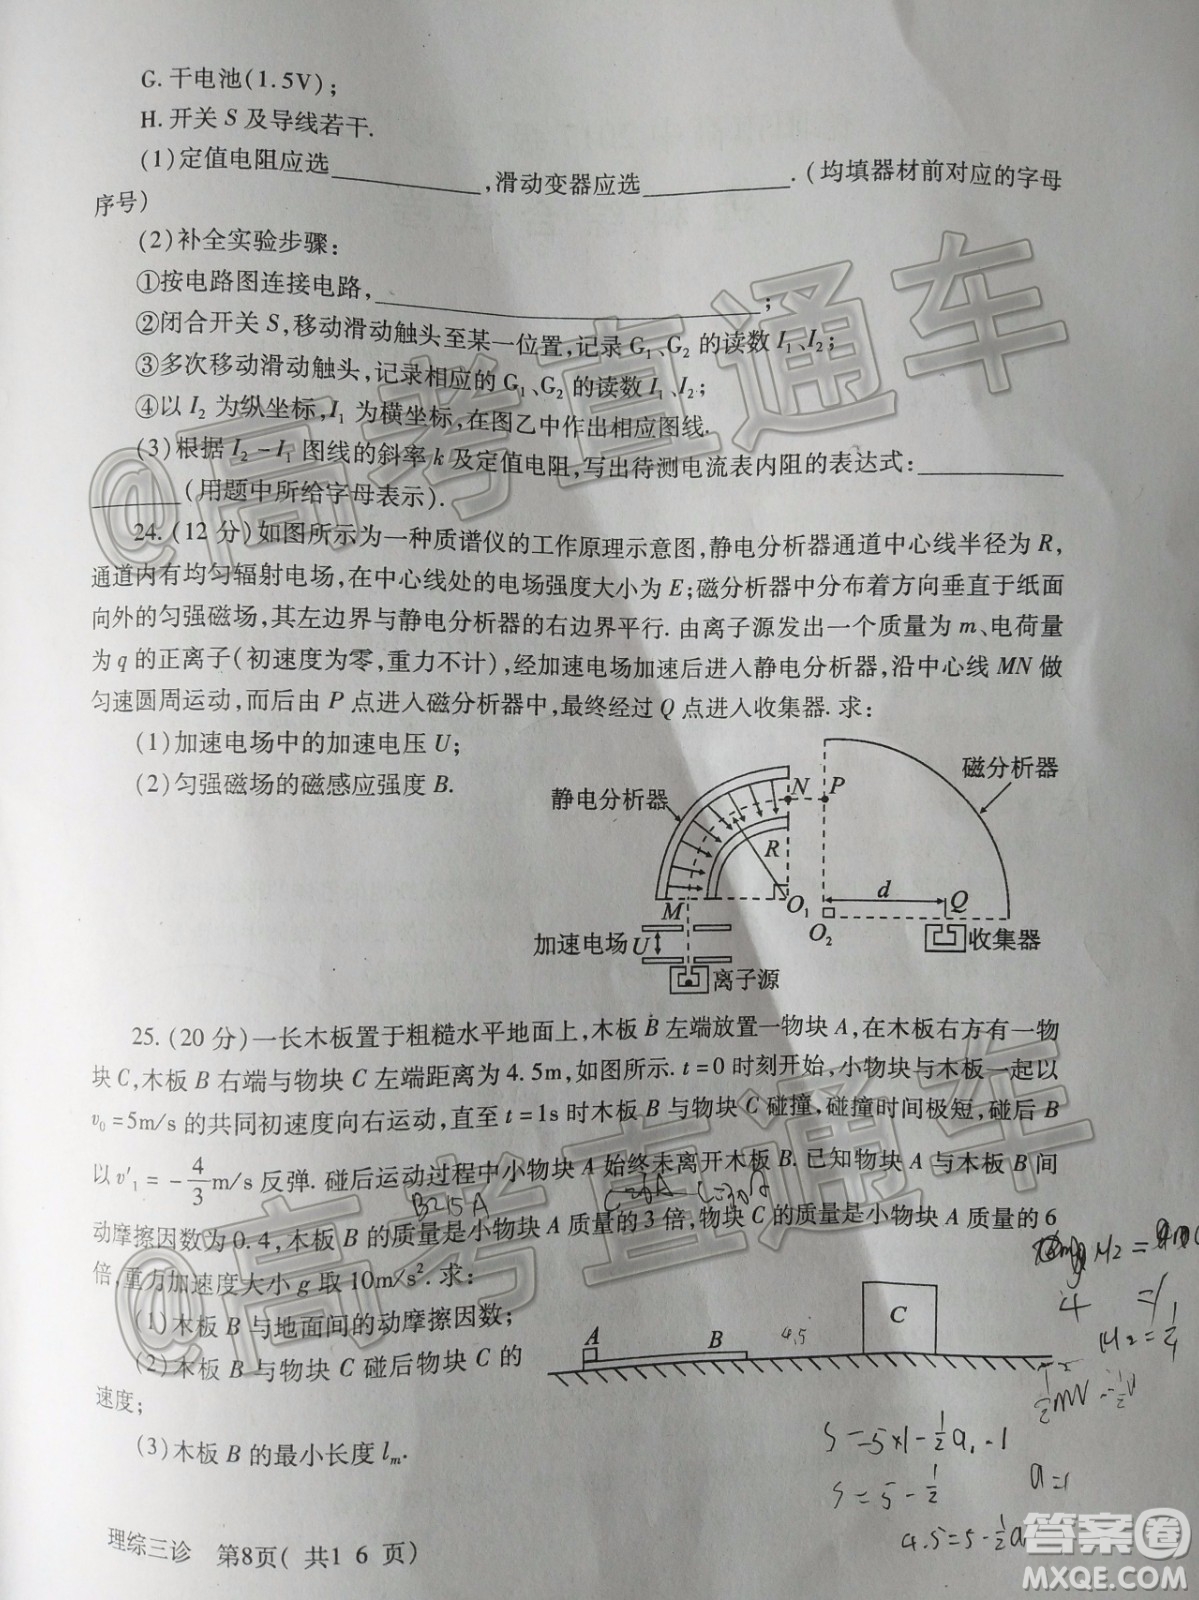 G. 干电池(1.5V)；
H. 开关 S 及导线若干.
(1)定值电阻应选__________,滑动变器应选__________.(均填器材前对应的字母
序号)
(2)补全实验步骤：
①按电路图连接电路,____________________；
②闭合开关 S,移动滑动触头至某一位置,记录 G₁、G₂ 的读数 I₁、I₂；
③多次移动滑动触头,记录相应的 G₁、G₂ 的读数 I₁、I₂；
④以 I₂ 为纵坐标,I₁ 为横坐标,在图乙中作出相应图线.
(3)根据 I₂－I₁ 图线的斜率 k 及定值电阻,写出待测电流表内阻的表达式：__________
______(用题中所给字母表示).
24.(12 分)如图所示为一种质谱仪的工作原理示意图,静电分析器通道中心线半径为 R,
通道内有均匀辐射电场,在中心线处的电场强度大小为 E;磁分析器中分布着方向垂直于纸面
向外的匀强磁场,其左边界与静电分析器的右边界平行. 由离子源发出一个质量为 m、电荷量
为 q 的正离子(初速度为零,重力不计),经加速电场加速后进入静电分析器,沿中心线 MN 做
匀速圆周运动,而后由 P 点进入磁分析器中,最终经过 Q 点进入收集器. 求：
(1)加速电场中的加速电压 U;
(2)匀强磁场的磁感应强度 B.
静电分析器
磁分析器
N
P
R
d
Q
M
O₁
O₂
加速电场 U
收集器
离子源
25.(20 分)一长木板置于粗糙水平地面上,木板 B 左端放置一物块 A,在木板右方有一物
块 C,木板 B 右端与物块 C 左端距离为 4.5m,如图所示. t=0 时刻开始,小物块与木板一起以
v₀=5m/s 的共同初速度向右运动,直至 t=1s 时木板 B 与物块 C 碰撞,碰撞时间极短,碰后 B
以 v′₁=－4/3 m/s 反弹. 碰后运动过程中小物块 A 始终未离开木板 B. 已知物块 A 与木板 B 间
动摩擦因数为 0.4,木板 B 的质量是小物块 A 质量的 3 倍,物块 C 的质量是小物块 A 质量的 6
倍,重力加速度大小 g 取 10m/s². 求：
(1)木板 B 与地面间的动摩擦因数；
(2)木板 B 与物块 C 碰后物块 C 的
速度；
(3)木板 B 的最小长度 lₘ.
A
B
4.5
C
S=5×1-½a·1
S=5-½
a=1
4.5=5-½a
理综三诊 第8页( 共1 6 页)
@高考直通车
@高考直通车
答案圈
MXQE.COM